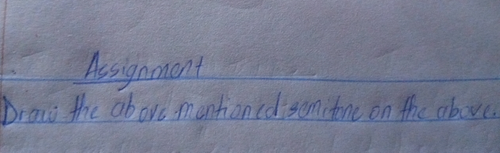 Assignment
Draw the above mentioned semitone on the above.